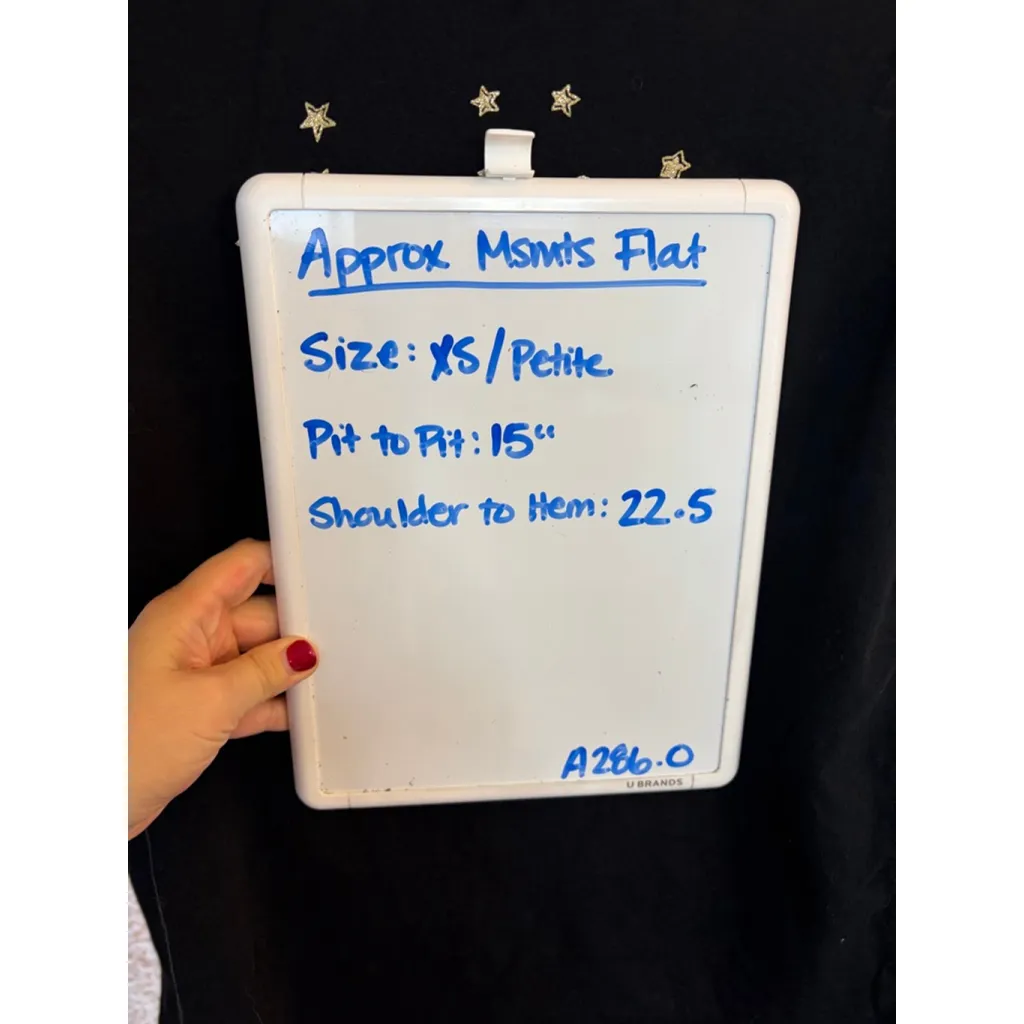 Approx Msmts Flat
Size: XS/Petite
Pit to Pit: 15"
Shoulder to Hem: 22.5
A286.0
U BRANDS